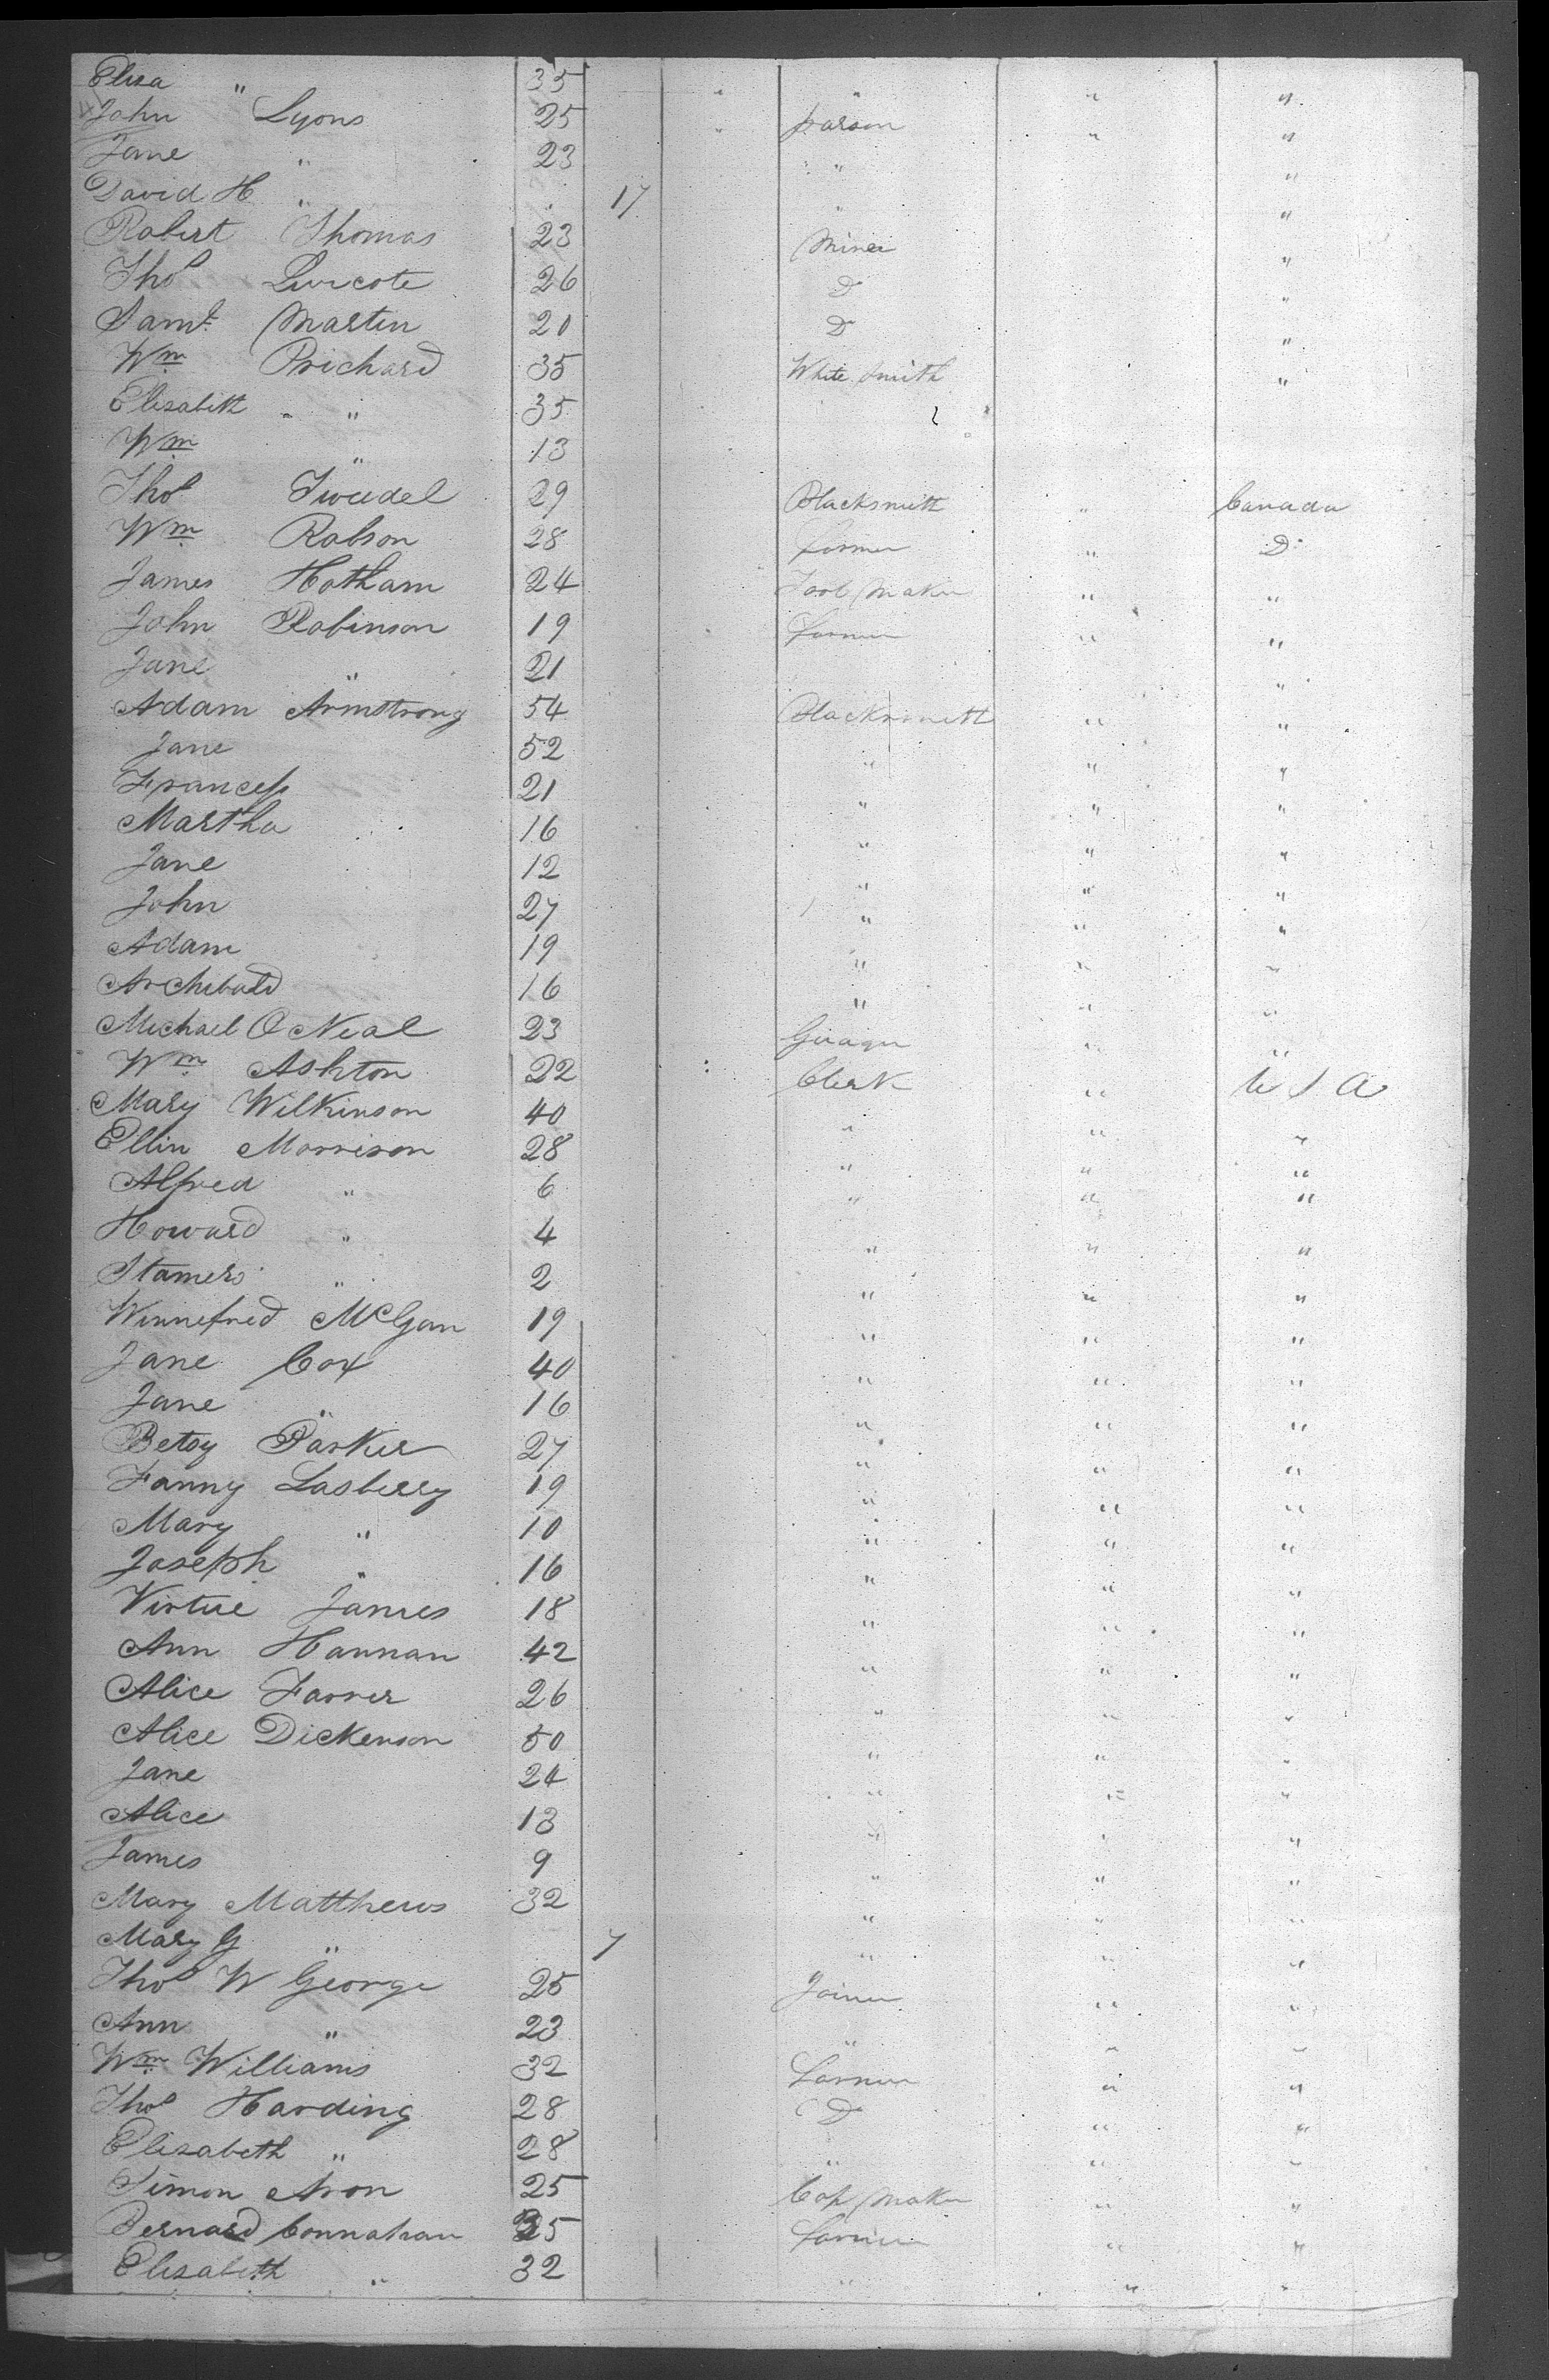 Elisa " 35 " " " "
John " Lyons 25 " parson " "
Jane " 23 " " "
David H " 17 " "
Robert Thomas 23 Miner "
Thos 26 D "
Saml Martin 20 D "
Wm Prichard 35 White Smith "
Elisabeth " " 35
Wm " 13
Thos Tweedel 29 Blacksmith " Canada
Wm Robson 28 farmer " D
James Hotham 24 Tool Maker " "
John Robinson 19 Farmer " "
Jane " 21 "
Adam Armstrong 54 Blacksmith " "
Jane 52 " " "
Francess 21 " " "
Martha 16 " " "
Jane 12 " " "
John 27 " " "
Adam 19 " " "
Archibald 16 " " "
Michael O Neal 23 " "
Wm Ashton 22 Clerk " U S A
Mary Wilkinson 40 " " "
Ellin Morrison 28 " " "
Alfred " 6 " " "
Howard " 4 " " "
Stamers " 2 " " "
Winnefred McGan 19 " " "
Jane Cox 40 " " "
Jane " 16 " " "
Betsy Parker 27 " " "
Fanny Lasberry 19 " " "
Mary " 10 " " "
Joseph " 16 " " "
Virtue James 18 " " "
Ann Hannan 42 " " "
Alice Farrer 26 " " "
Alice Dickenson 50 " " "
Jane 24 " " "
Alice 13 " " "
James 9 " " "
Mary Matthews 32 " " "
Mary G " 7 " " "
Thos W George 25 Joiner " "
Ann " 23 " " "
Wm Williams 32 Farmer " "
Thos Harding 28 D " "
Elisabeth " 28 " " "
Simon Aron 25 Cap Maker " "
Bernard Connahan 35 Farmer " "
Elisabeth " 32 " " "